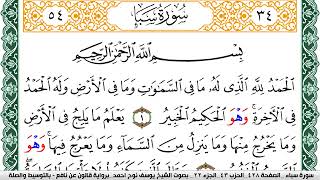 ٣٤ سُورَةُ سَبَإٍ ٥٤
بِسْمِ اللَّهِ الرَّحْمَٰنِ الرَّحِيمِ
الْحَمْدُ لِلَّهِ الَّذِى لَهُ مَا فِى السَّمَٰوَٰتِ وَمَا فِى الْأَرْضِ وَلَهُ الْحَمْدُ
فِى الْأَخِرَةِ وَهْوَ الْحَكِيمُ الْخَبِيرُ ١ يَعْلَمُ مَا يَلِجُ فِى الْأَرْضِ
وَمَا يَخْرُجُ مِنْهَا وَمَا يَنزِلُ مِنَ السَّمَآءِ وَمَا يَعْرُجُ فِيهَا وَهْوَ
سورة سبأ الصفحة ٤٢٨ الحزب ٤٣ الجزء ٢٢ بصوت الشيخ يوسف نوح احمد برواية قالون عن نافع - بالتوسيط والصلة